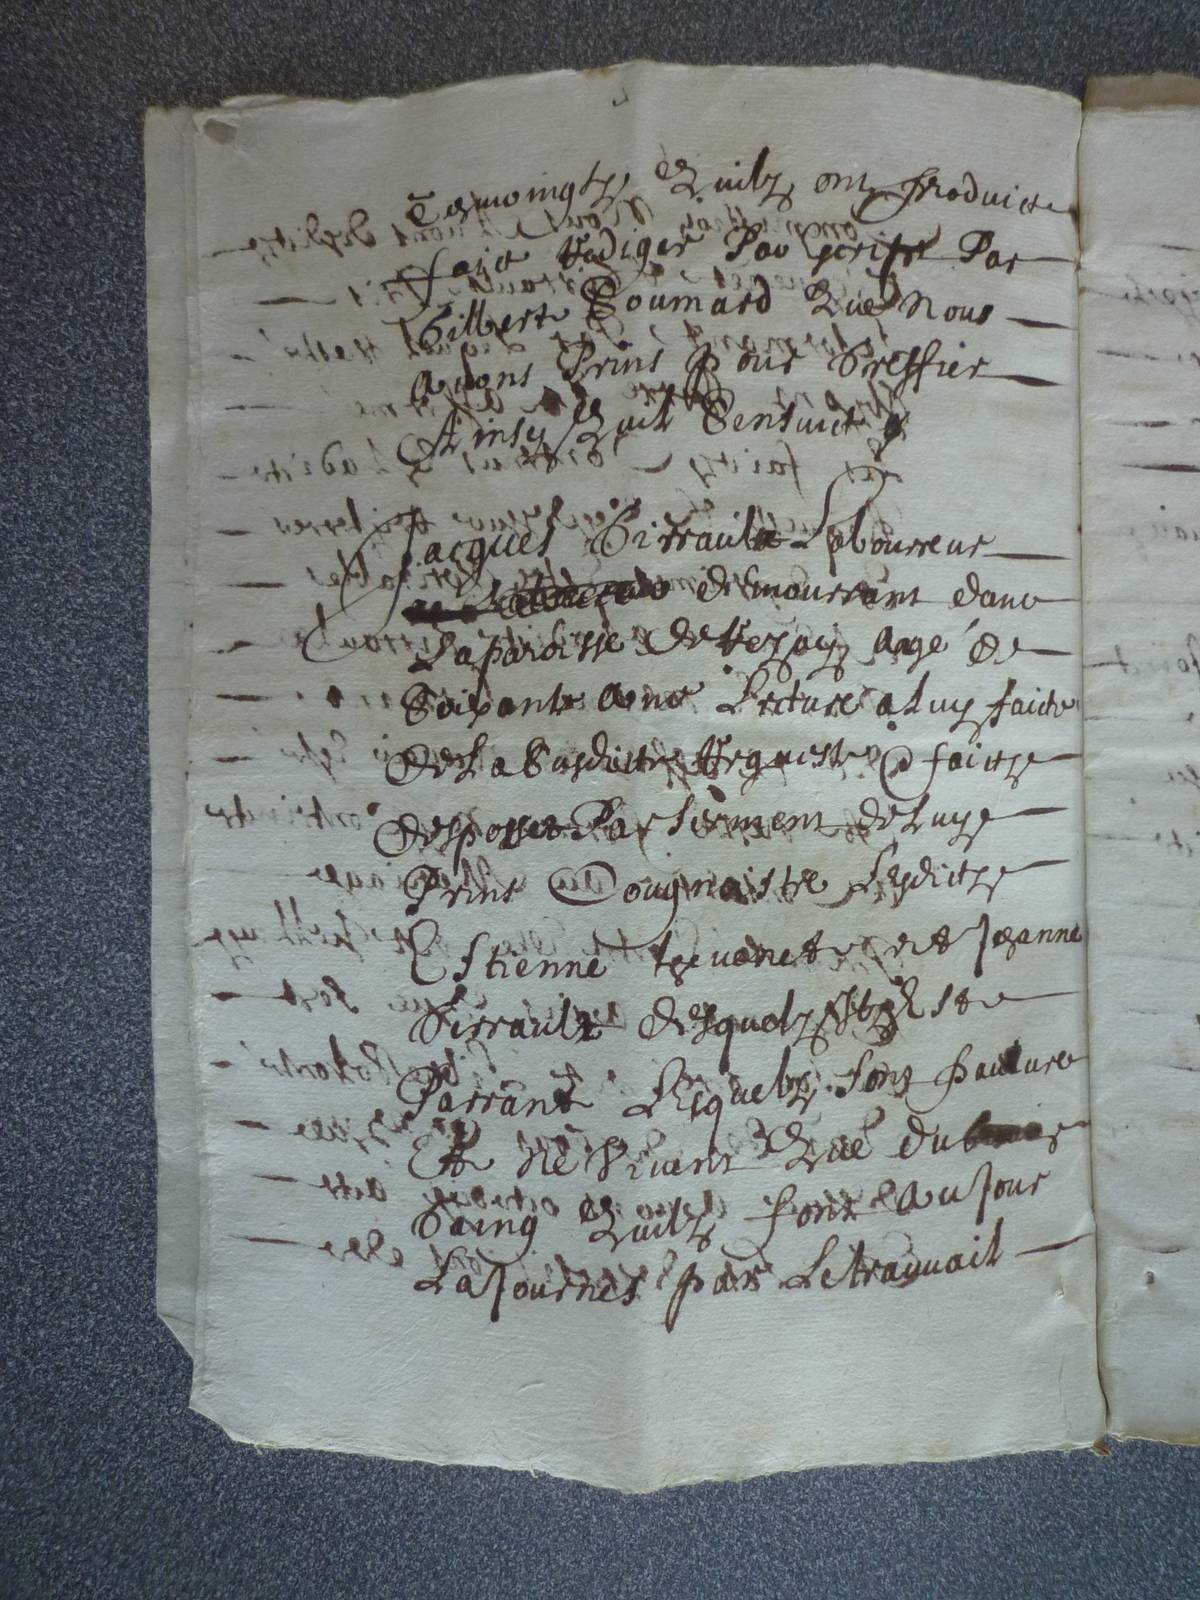 Tesmoingtz quilz ont produict
faict rediger par script par
Gilbert Boumard que nous
avons prins pour greffier
Ainsy quil sensuict
Jacques Girrault Labourreur
demourrant dans
La paroisse de aagé de
Soixante ans Lecture a luy faicte
de La Susdicte Requeste & faictz
depposse Par serment de Luy
Prins Cougnoistre Lesdictz
Estienne et Jeanne
Girrault desquelz
Parrant Lesquelz sont pauvres
Et ne vivent que du
Gaing quilz font au Jour
La Journes par Le travail